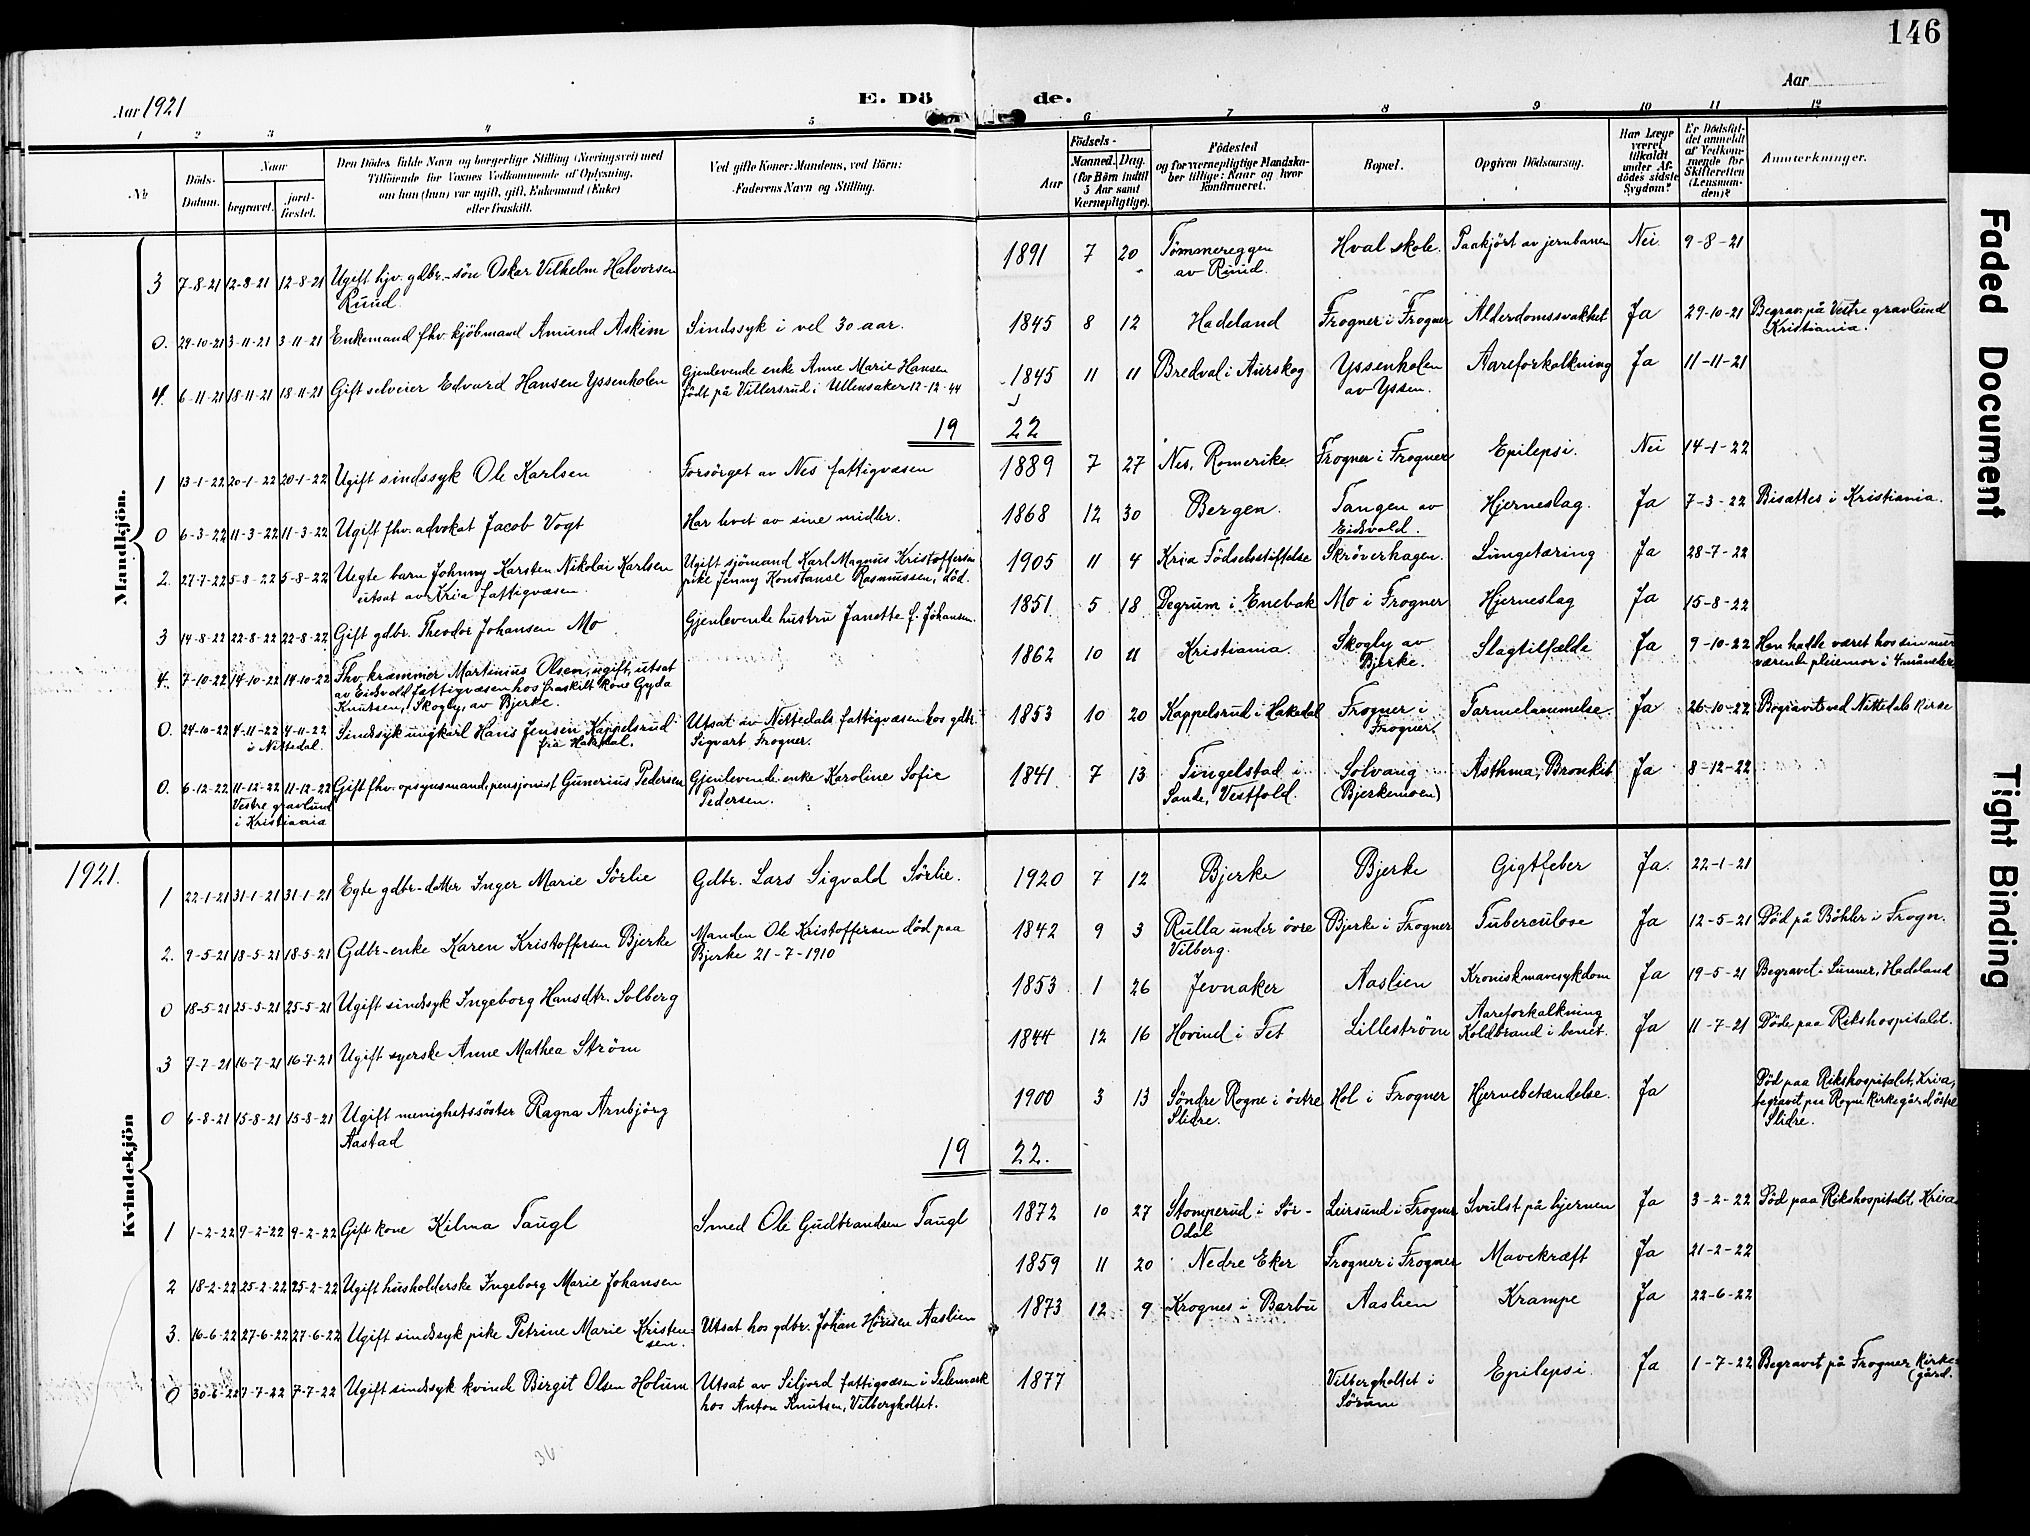 146
Aar 1921
E. Dö de.
Aar
1 2 3 4 5 6 7 8 9 10 11 12
No
Döds-Datum.
Naar
begravet. jord-fæstet.
Den Dödes fulde Navn og borgerlige Stilling (Næringsvei) med
Tilföiende for Voxnes Vedkommende af Oplysning,
om han (hun) var ugift, gift, Enkemand (Enke)
eller fraskilt.
Ved gifte Koner: Mandens, ved Börn:
Faderens Navn og Stilling.
Födsels-
Aar
Maaned. Dag.
(for Börn indtil
5 Aar samt
Værnepligtige).
Födested
og for værnepligtige Mandska-
ber tillige: Kaar og hvor
konfirmeret.
Bopæl.
Opgiven Dödsaarsag.
Har Læge
været
tilkaldt
under Af-
dödes sidste
Sygdom?
Er Dödsfal-
det anmeldt
af Vedkom-
mende for
Skifteretten
(Lensman-
den)?
Anmerkninger.
Mandkjön.
3 7-8-21 12-8-21 12-8-21 Ugift hjv. gdbr.-sön Oskar Vilhelm Halvorsen
Ruud.
1891 7 20 Tömmereggen
av Ruud.
Hval skole. Paakjört av jernbanen Nei. 9-8-21
0. 24-10-21 3-11-21 3-11-21 Enkemand fhv. kjöbmand Amund Askim Sindssyk i vel 30 aar. 1845 8 12 Hadeland Frogner i Frogner Alderdomssvakhet Ja 29-10-21 Begrav. på Vestre gravlund
Kristiania.
4. 6-11-21 18-11-21 18-11-21 Gift selveier Edvard Hansen Yssenholen Gjenlevende enke Anne Marie Hansen
födt på Villersrud i Ullensaker 12-12-44
1845 11 11 Bredval i Aurskog Yssenholen
av Yssen.
Aareforkalkning Ja 11-11-21
19 22
1 13-1-22 20-1-22 20-1-22 Ugift sindssyk Ole Karlsen Forsörget av Nes fattigvæsen 1889 7 27 Nes, Romerike Frogner i Frogner Epilepsi. Nei 14-1-22
0 6-3-22 11-3-22 11-3-22 Ugift fhv. advokat Jacob Vogt Har levet av sine midler. 1868 12 30 Bergen. Tangen av
Eidsvold.
Hjerneslag. Ja 7-3-22 Bisættes i Kristiania.
2. 27-7-22 5-8-22 5-8-22 Uegte barn Johnny Karsten Nikolai Karlsen
utsat av Kria fattigvæsen.
Ugift sjömand Karl Magnus Kristoffersen
pike Jenny Konstanse Rasmussen, död.
1905 11 4 Kria Födselsstiftelse Skröverhagen. Lungetæring Ja 28-7-22
3 14-8-22 22-8-22 22-8-22 Gift gdbr. Theodor Johansen Mo Gjenlevende hustru Janette f. Johansen. 1851 5 18 Degrum i Enebak Mo i Frogner Hjerneslag Ja 15-8-22
4. 7-10-22 14-10-22 14-10-22 Fhv. kræmmer Martinius Olsen, ugift, utsat
av Eidsvold fattigvæsen hos fraskilt kone Gyda
Knutsen, Skogly, av Bjerke.
1862 10 11 Kristiania. Skogly av
Bjerke.
Slagtilfælde Ja 9-10-22 Han hadde været hos sin nu-
værende pleiemor i 4 måneder
0. 24-10-22 4-11-22 4-11-22
i Nittedal.
Sindssyk ungkarl Hans Jensen Kappelsrud
fra Hakedal.
Utsat av Nittedals fattigvæsen hos gdbr.
Sigvart Frogner.
1853 10 20 Kappelsrud i Hakedal Frogner i
Frogner.
Tarmelammelse. Ja 26-10-22 Begravet ved Nittedals kirke
0. 6-12-22 11-12-22 11-12-22
Vestre gravlund
i Kristiania
Gift fhv. opsynsmand, pensjonist Gunerius Pedersen Gjenlevende enke Karoline Sofie
Pedersen.
1841 7 13 Tingelstad i
Sande, Vestfold.
Solvang
(Bjerkemoen)
Asthma, Bronkit Ja 8-12-22
1921.
Kvindekjön
1 22-1-21 31-1-21 31-1-21 Egte gdbr-datter Inger Marie Sörlie Gdbr. Lars Sigvald Sörlie. 1920 7 12 Bjerke Bjerke Gigtfeber Ja. 22-1-21
2. 9-5-21 18-5-21 18-5-21 Gdbr-enke Karen Kristoffersen Bjerke Manden Ole Kristoffersen död paa
Bjerke 21-7-1910
1842 9 3 Rulla under övre
Vilberg.
Bjerke i Frogner Tuberculose Ja 12-5-21 Död på Böhler i Frogn.
0 18-5-21 25-5-21 25-5-21 Ugift sindssyk Ingeborg Hansdtr. Solberg 1853 1 26 Jevnaker Aaslien Kronisk mavesykdom Ja 19-5-21 Begravet i Lunner, Hadeland
3 7-7-21 16-7-21 16-7-21 Ugift syerske Anne Mathea Ström 1844 12 16 Hovind i Fet Lilleström Aareforkalkning
Koldbrand i benet. Ja 11-7-21 Döde paa Rikshospitalet.
0 6-8-21 15-8-21 15-8-21 Ugift menighetssöster Ragna Arnbjörg
Aastad
1900 3 13 Söndre Rogne i östre
Slidre.
Hol i Frogner Hjernebetændelse. Ja Död paa Rikshospitalet, Kria,
begravet paa Rogne kirkegård, östre
Slidre.
19 22.
1 1-2-22 9-2-22 9-2-22 Gift kone Kilma Taugl Smed Ole Gudbrandsen Taugl 1872 10 27 Stomperud i Sör-
Odal
Leirsund i Frogner Svulst på hjernen Ja 3-2-22 Död paa Rikshospitalet, Kria
2 18-2-22 25-2-22 25-2-22 Ugift husholderske Ingeborg Marie Johansen 1859 11 20 Nedre Eker Frogner i Frogner Mavekræft Ja 21-2-22
3. 16-6-22 27-6-22 27-6-22 Ugift sindssyk pike Petrine Marie Kristen-
sen.
Utsat hos gdbr. Johan Aaslien 1873 12 9 Krognes i Barbu Aaslien Krampe Ja 22-6-22
0 30-6-22 7-7-22 7-7-22 Ugift sindssyk kvinde Birgit Olsen Holum Utsat av Siljord fattigvæsen i Telemark
hos Anton Knutsen, Vilbergholtet.
1877 Vilbergholtet i
Sörum
Epilepsi. Ja 1-7-22 Begravet på Frogner kirke-
gård.
Faded Document
Tight Binding